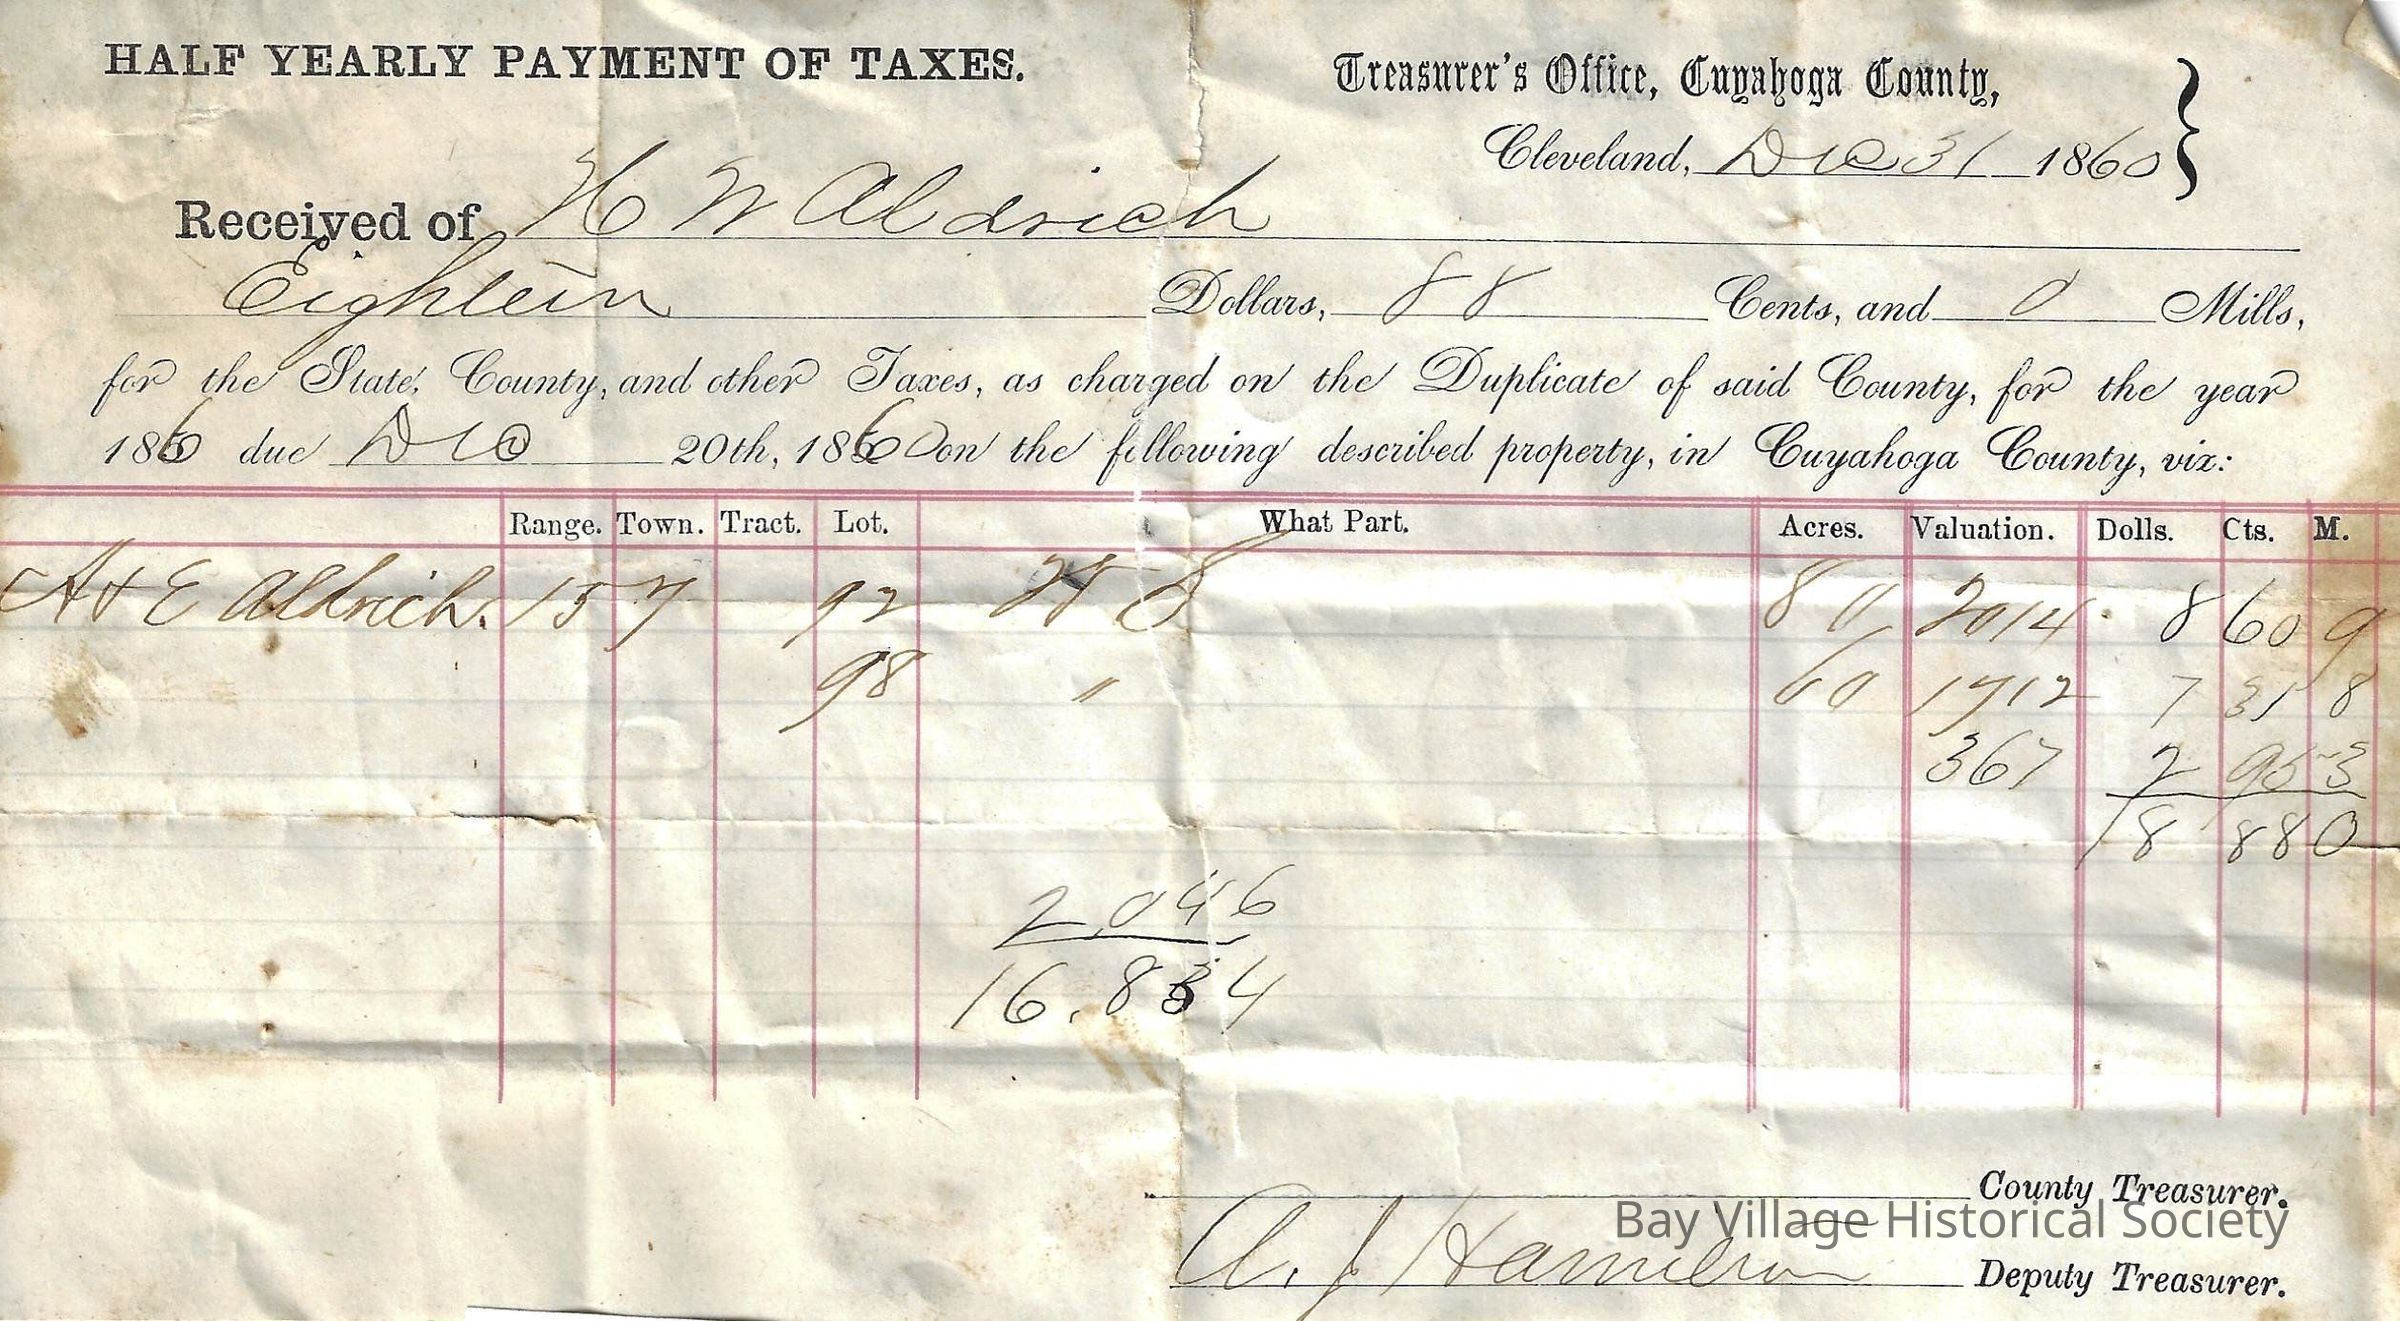 HALF YEARLY PAYMENT OF TAXES.
Treasurer's Office, Cuyahoga County,
Cleveland, Dec 31 1860
Received of H W Aldrich
Eighteen Dollars, 88 Cents, and 0 Mills,
for the State, County, and other Taxes, as charged on the Duplicate of said County, for the year
1860 due Dec 20th, 1860 on the following described property, in Cuyahoga County, viz:
Range. Town. Tract. Lot. What Part. Acres. Valuation. Dolls. Cts. M.
A & E Aldrich. 15 7 92 80 2014 8 60 9
98 " 60 1712 7 31 8
367 2 95 3
18 88 0
2,046
16.834
County Treasurer.
Bay Village Historical Society
A. J. Hamilton Deputy Treasurer.